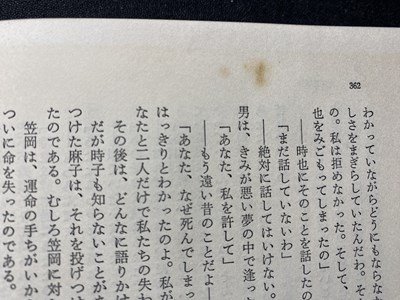 362
わかっていながらどうにもならな
しさをまぎらしていたんだわ。そ
の。私は拒めなかった。そして、
也をみごもってしまったの」
――時也にそのことを話したの
「まだ話していないわ」
――絶対に話してはいけない。
男は、きみが悪い夢の中で逢っ
「あなた、私を許して」
――もう遠い昔のことだよ――
「あなた、なぜ死んでしまっ
はっきりとわかったのよ。私が
なたと二人だけで私たちの失わ
その後は、どんなに語りか
だが時子も知らないことがあ
つけた麻子は、それを投げつけ
たのである。むしろ笠岡に対
笠岡は、運命の手ちがいか
ついに命を失ったのである。